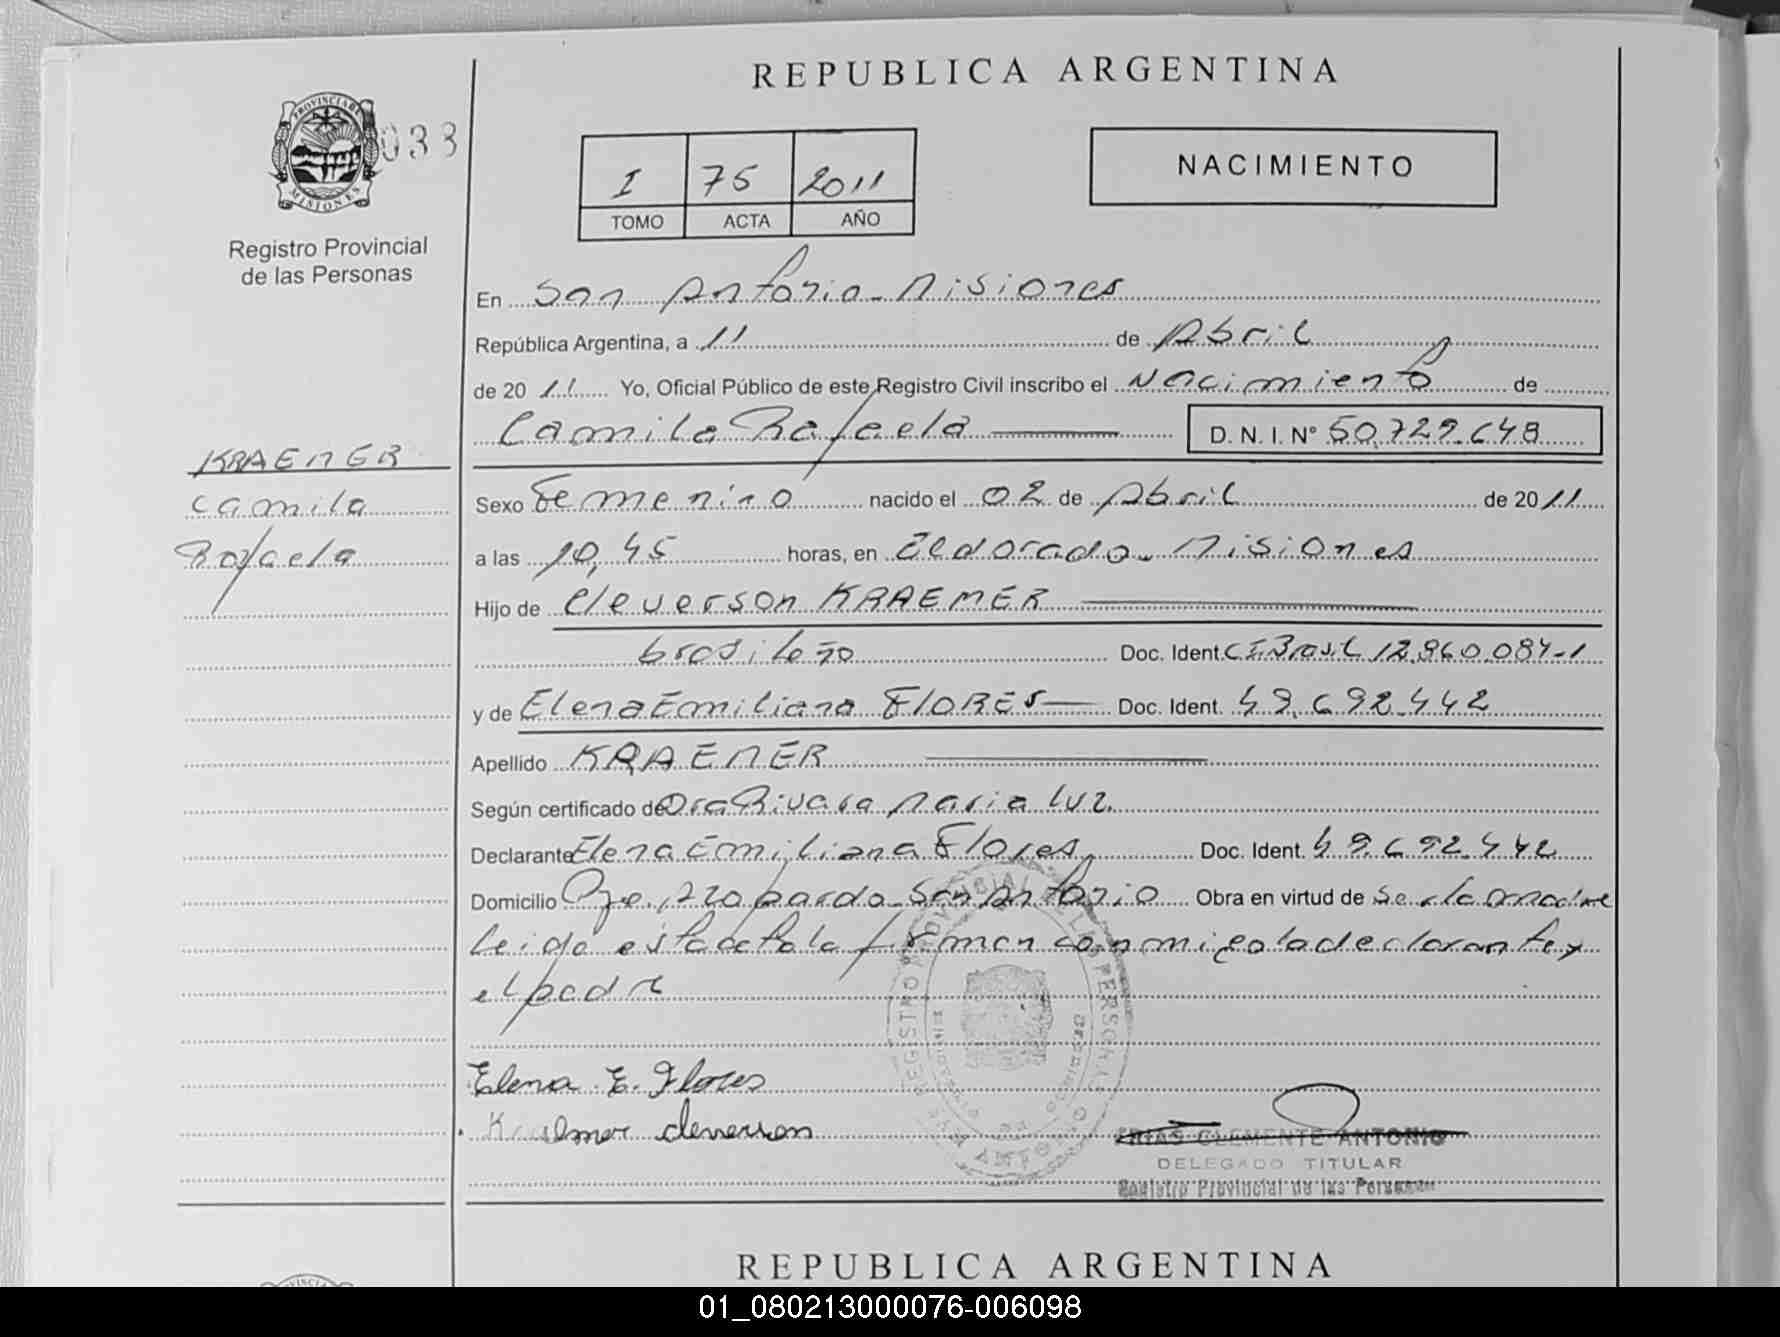 REPUBLICA ARGENTINA
PROVINCIA DE
MISIONES
033
Registro Provincial
de las Personas
I 75 2011
TOMO ACTA AÑO
NACIMIENTO
En San Antonio - Misiones
República Argentina, a 11 de Abril
de 20 11 Yo, Oficial Público de este Registro Civil inscribo el Nacimiento de
Camila Rafaela D. N. I. Nº 50.729.648
KRAEMER
Camila
Rafaela
Sexo Femenino nacido el 02 de Abril de 20 11
a las 10,45 horas, en Eldorado - Misiones
Hijo de Cleverson KRAEMER
brasileño Doc. Ident. CI Brasil 12.960.084-1
y de Elena Emiliana FLORES Doc. Ident. 49.692.442
Apellido KRAEMER
Según certificado de Dra Rivara Maria Luz
Declarante Elena Emiliana Flores Doc. Ident. 49.692.442
Domicilio San Antonio Obra en virtud de Ser la madre
Leida esta acta la firman conmigo la declarante y
el padre
Elena E. Flores
Kraemer cleverson
REGISTRO PROVINCIAL DE LAS PERSONAS
FRIAS CLEMENTE ANTONIO
DELEGADO TITULAR
Registro Provincial de las Personas
REPUBLICA ARGENTINA
01_080213000076-006098